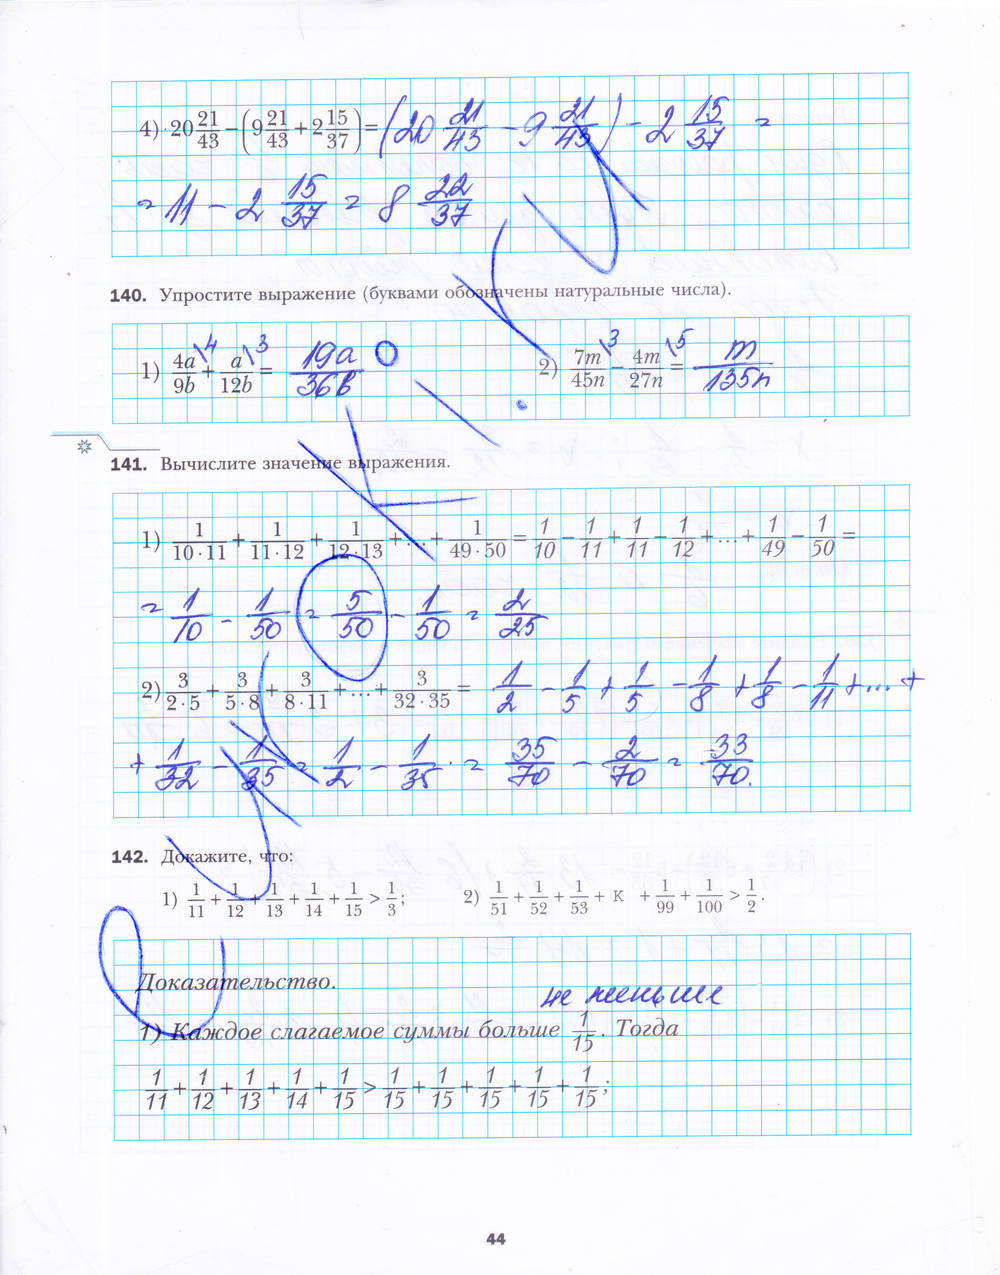 4) 20 21/43 − (9 21/43 + 2 15/37) = (20 21/43 − 9 21/43) − 2 15/37 =
= 11 − 2 15/37 = 8 22/37
140. Упростите выражение (буквами обозначены натуральные числа).
1) 4a/9b \4 + a/12b \3 = 19a/36b
2) 7m/45n \3 − 4m/27n \5 = m/135n
141. Вычислите значение выражения.
1) 1/10·11 + 1/11·12 + 1/12·13 + ... + 1/49·50 = 1/10 − 1/11 + 1/11 − 1/12 + ... + 1/49 − 1/50 =
= 1/10 − 1/50 = 5/50 − 1/50 = 2/25
2) 3/2·5 + 3/5·8 + 3/8·11 + ... + 3/32·35 = 1/2 − 1/5 + 1/5 − 1/8 + 1/8 − 1/11 + ... +
+ 1/32 − 1/35 = 1/2 − 1/35 = 35/70 − 2/70 = 33/70.
142. Докажите, что:
1) 1/11 + 1/12 + 1/13 + 1/14 + 1/15 > 1/3;
2) 1/51 + 1/52 + 1/53 + к + 1/99 + 1/100 > 1/2.
Доказательство.
не меньше
1) Каждое слагаемое суммы больше 1/15. Тогда
1/11 + 1/12 + 1/13 + 1/14 + 1/15 > 1/15 + 1/15 + 1/15 + 1/15 + 1/15;
44